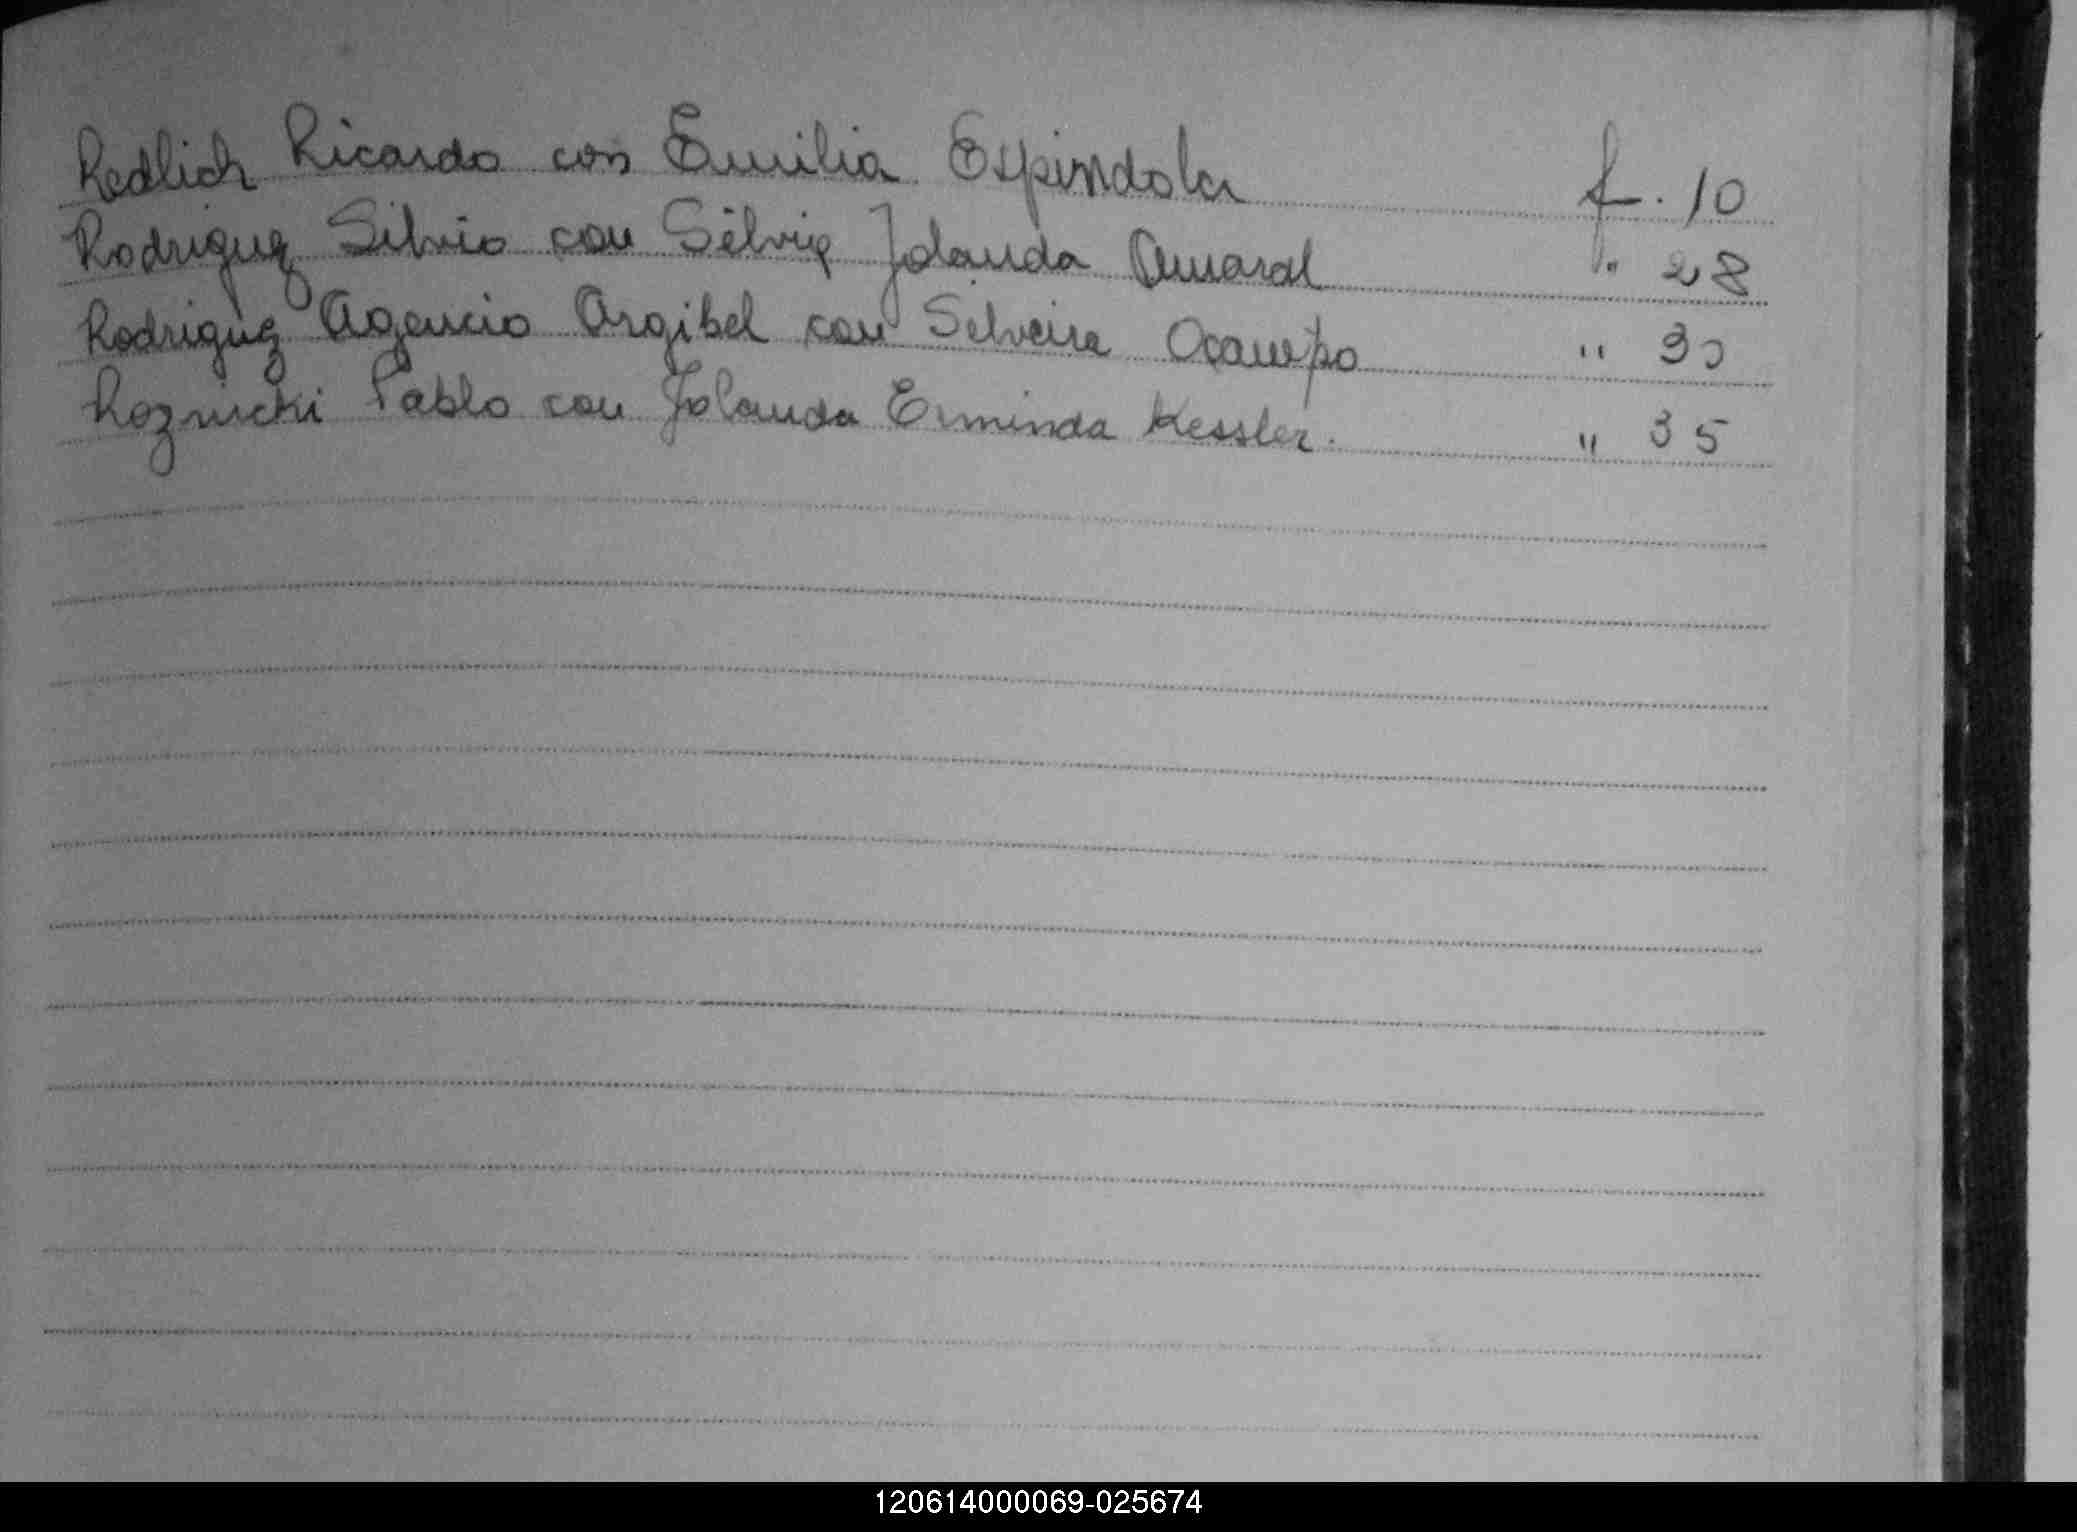 Redlich Ricardo con Emilia Espindola f. 10
Rodriguez Silvio con Silvia Jolanda Amaral " 28
Rodriguez Agencio Argibel con Silveira Ocampo " 30
Roznicki Pablo con Jolanda Erminda Kessler. " 35
120614000069-025674